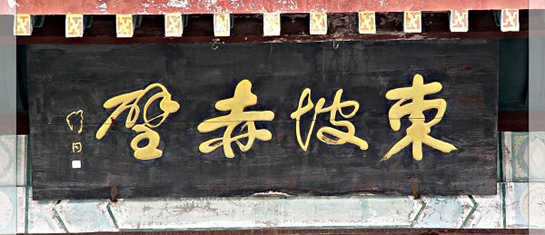 東坡赤壁